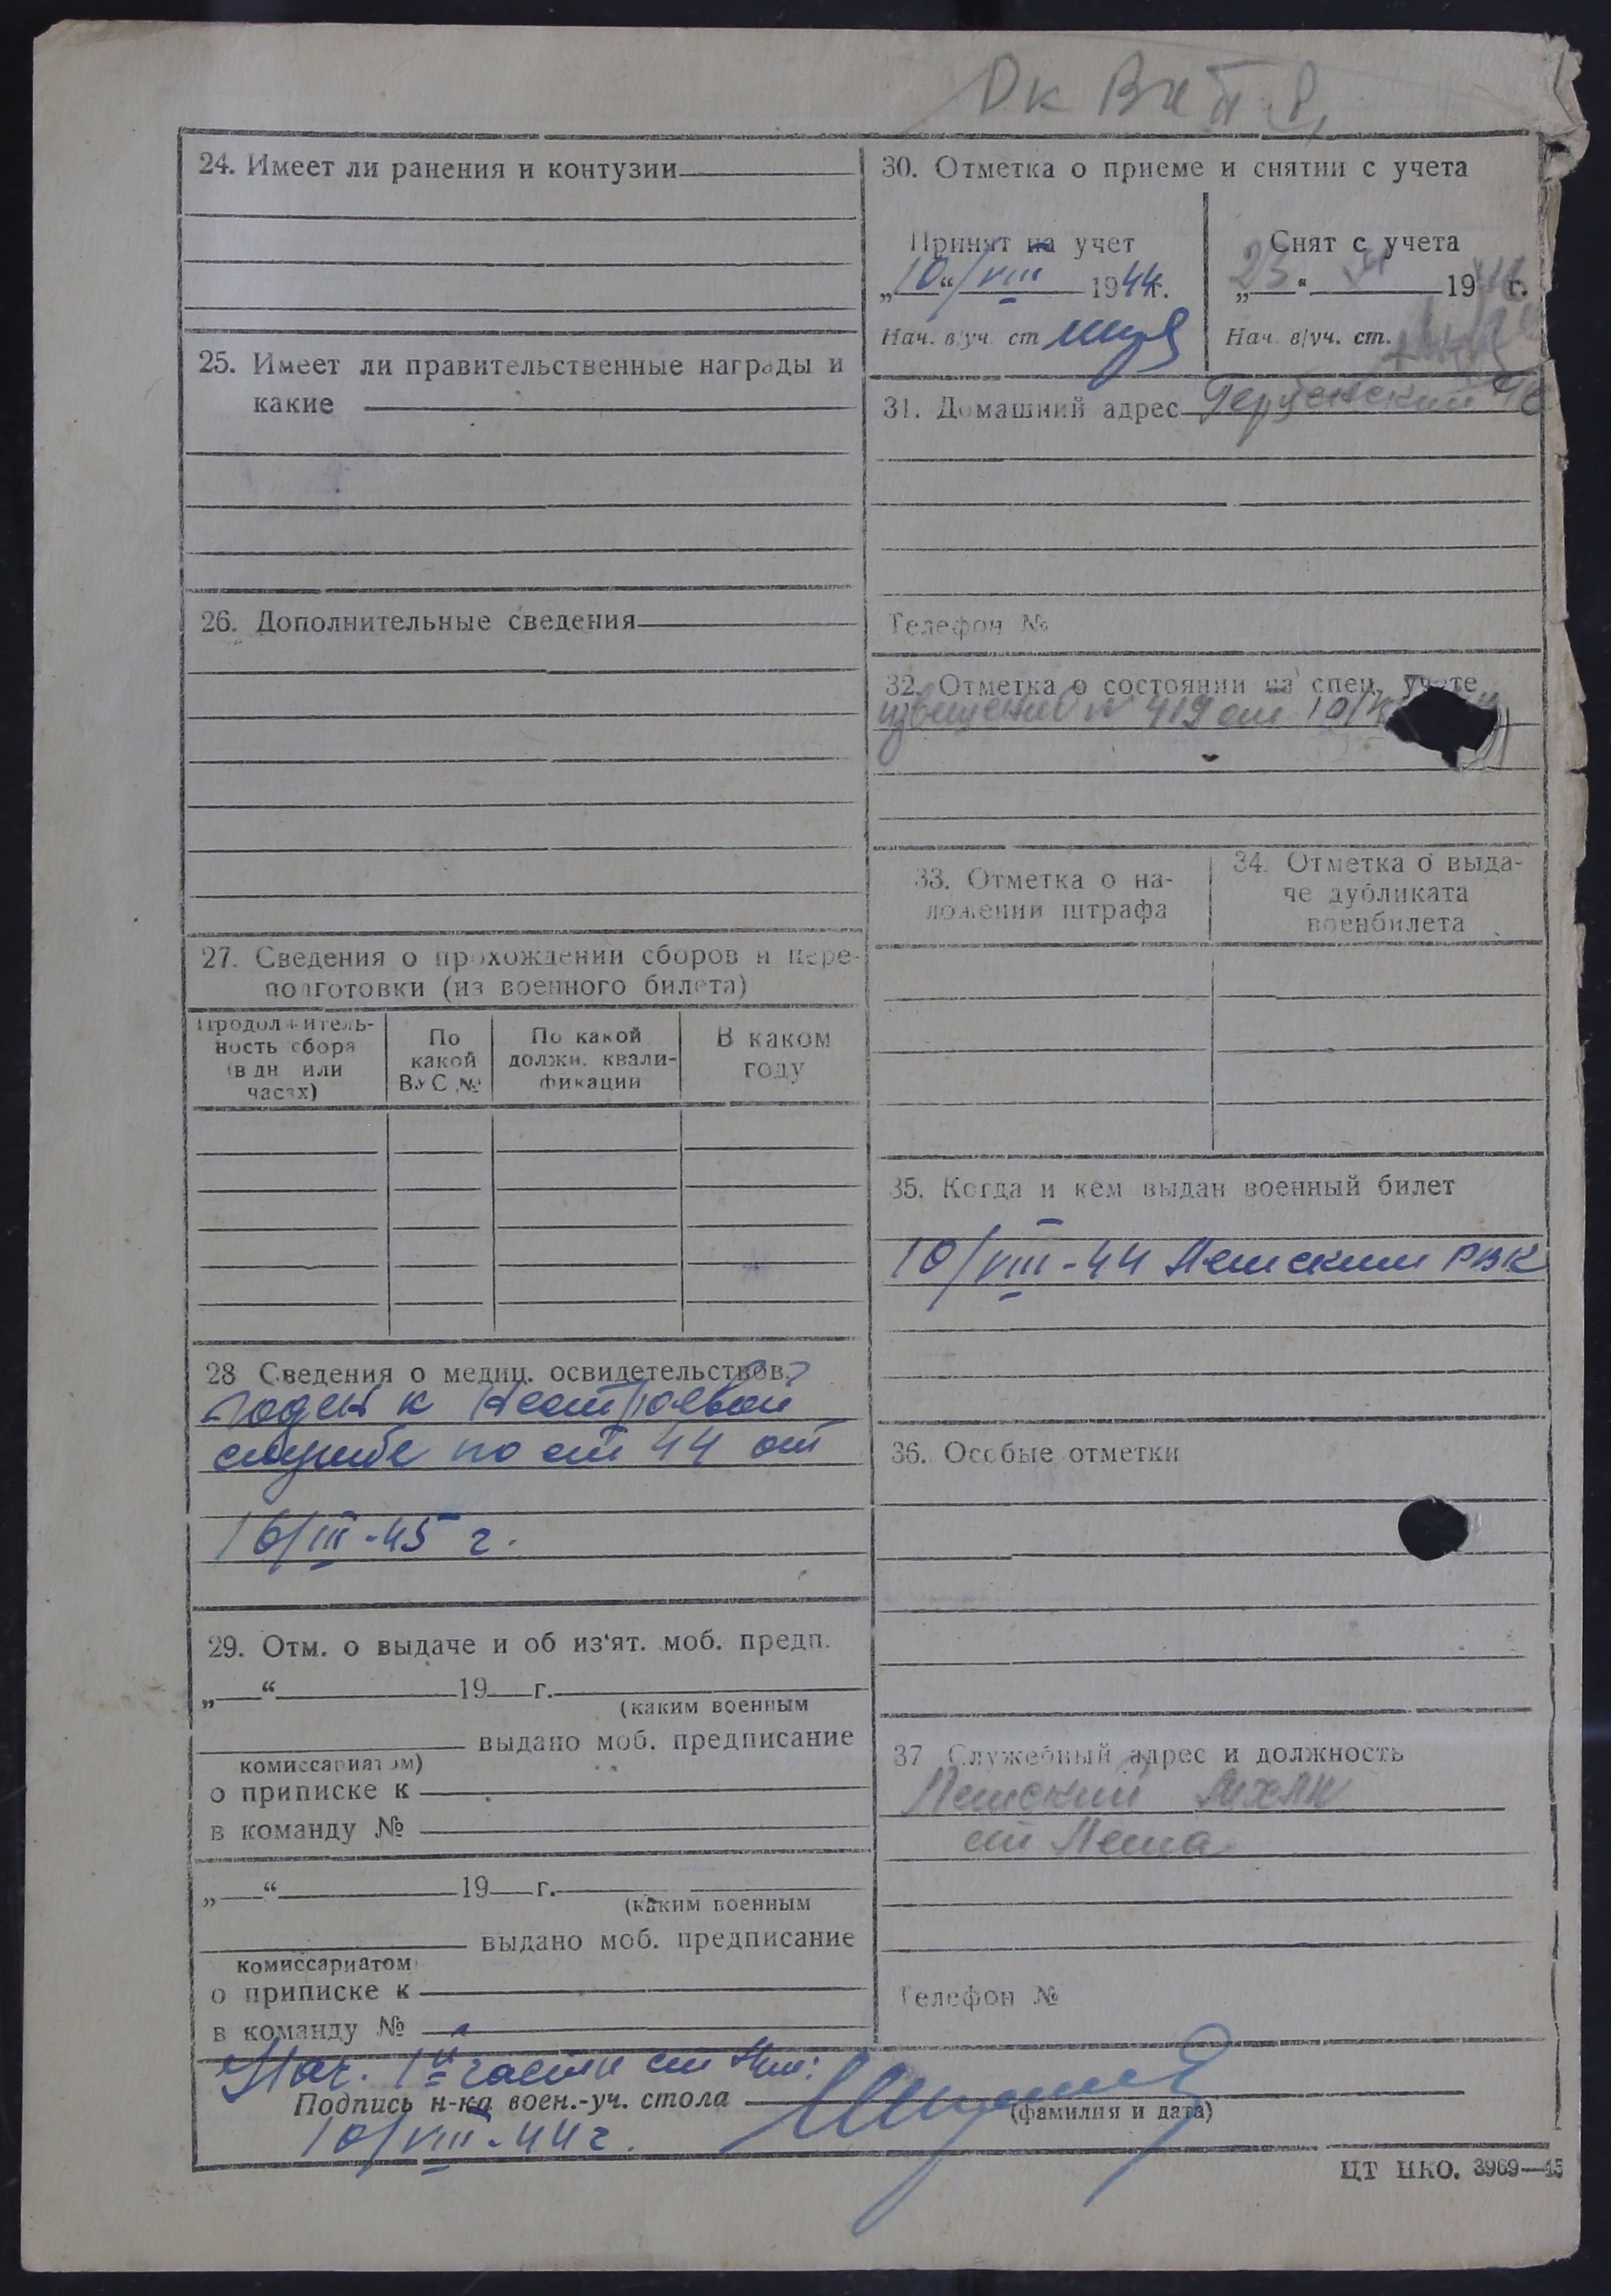 24. Имеет ли ранения и контузии
25. Имеет ли правительственные награды и
какие
26. Дополнительные сведения
27. Сведения о прохождении сборов и пере-
подготовки (из военного билета)
Продолжитель-
ность сбора
(в дн или
часах)
По
какой
ВУС №
По какой
должн. квали-
фикации
В каком
году
28 Сведения о медиц. освидетельствов.
годен к нестроевой
службе по ст 44 от
16/III-45 г.
29. Отм. о выдаче и об из‘ят. моб. предп.
„ “ 19 г.
(каким военным
выдано моб. предписание
комиссариатом)
о приписке к
в команду №
„ “ 19 г.
(каким военным
выдано моб. предписание
комиссариатом
о приписке к
в команду №
30. Отметка о приеме и снятии с учета
Принят на учет
„10“/VIII 1944г.
Нач. в/уч. ст
Снят с учета
„23“ 19 г.
Нач. в/уч. ст.
31. Домашний адрес
Телефон №
32. Отметка о состоянии на спец. учете
извещение № 419 от 10/
33. Отметка о на-
ложении штрафа
34. Отметка о выда-
че дубликата
военбилета
35. Когда и кем выдан военный билет
10/VIII-44 Лешским РВК
36. Особые отметки
37 Служебный адрес и должность
Телефон №
Нач. 1й части
Подпись н-ка воен.-уч. стола
(фамилия и дата)
10/VIII-44г.
ЦТ НКО. 3969—45